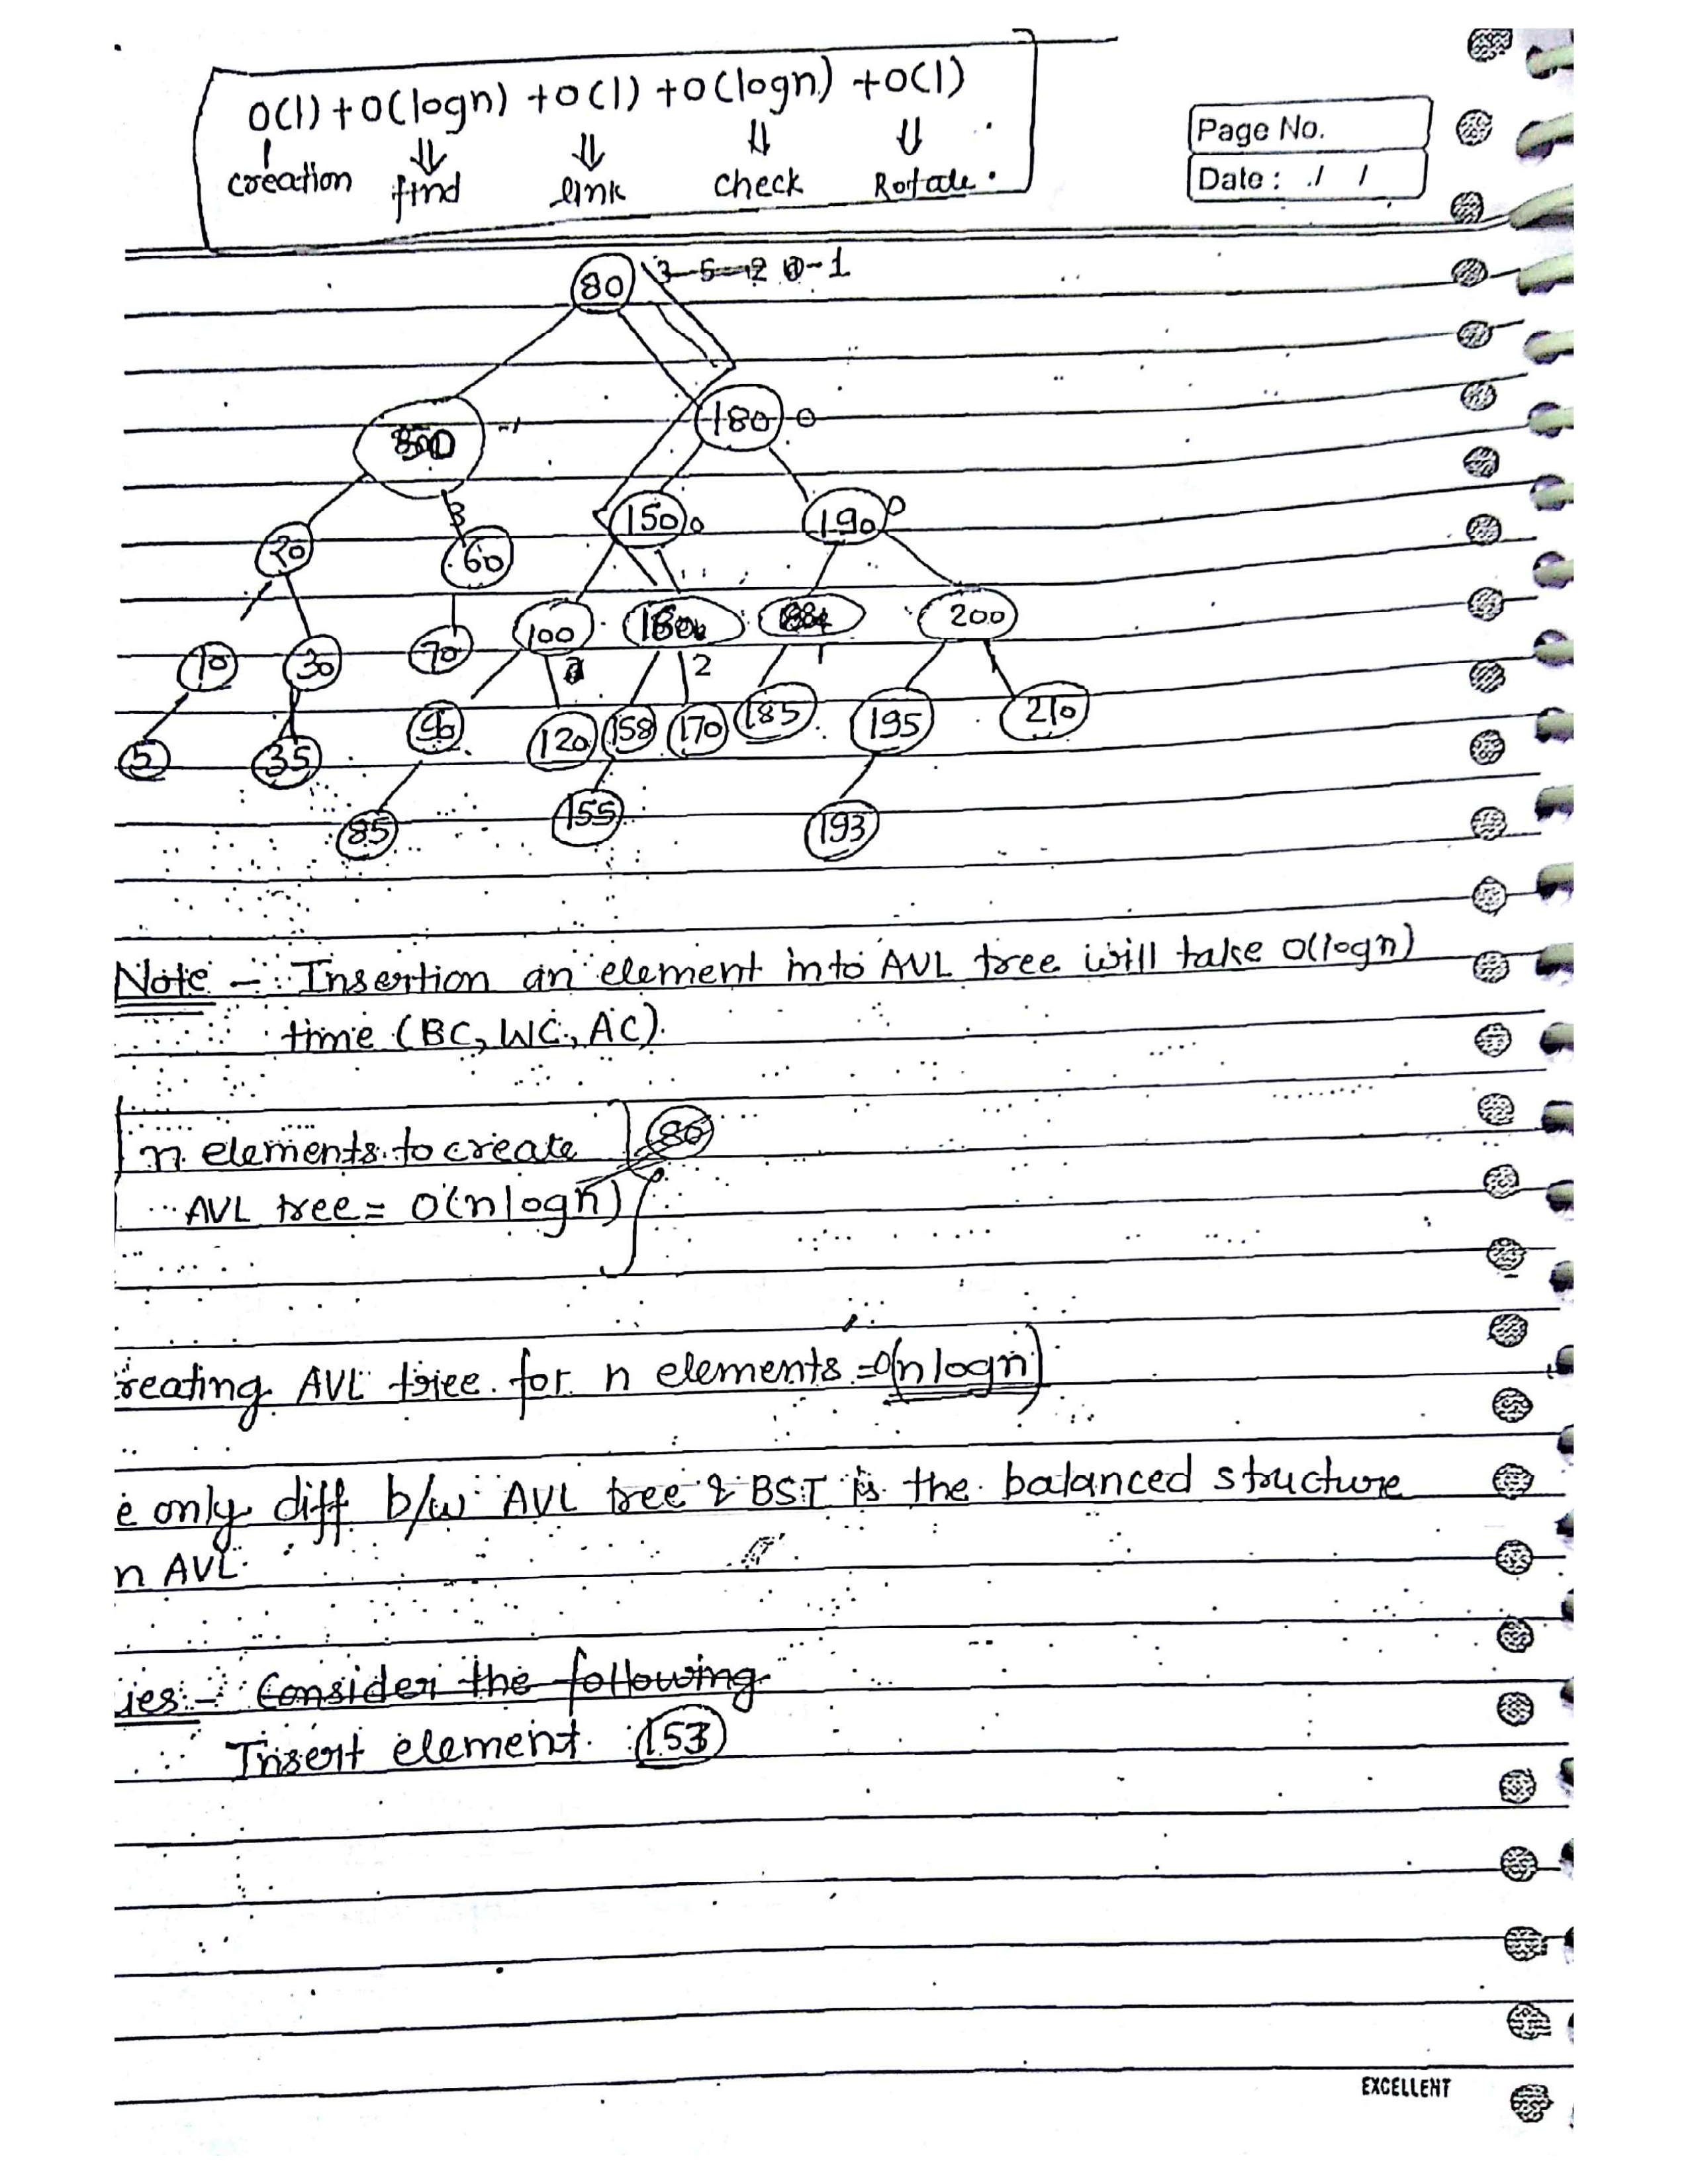 O(1) + O(logn) + O(1) + O(logn) + O(1)
creation find link check Rotate.
Page No.
Date: / /
80 3 5 -2 0-1
-1 180 0
20 3 60 150 0 190 0
10 30 70 100 184 200
2 1
5 35 90 120 158 170 185 195 210
85 155 193
Note - Insertion an element into AVL tree will take O(logn)
time (BC, WC, AC).
n elements to create 80
AVL tree = O(nlogn)
reating AVL tree for n elements = O(nlogn)
e only diff b/w AVL tree & BST is the balanced structure
n AVL
ies - Consider the following
Insert element 153
EXCELLENT